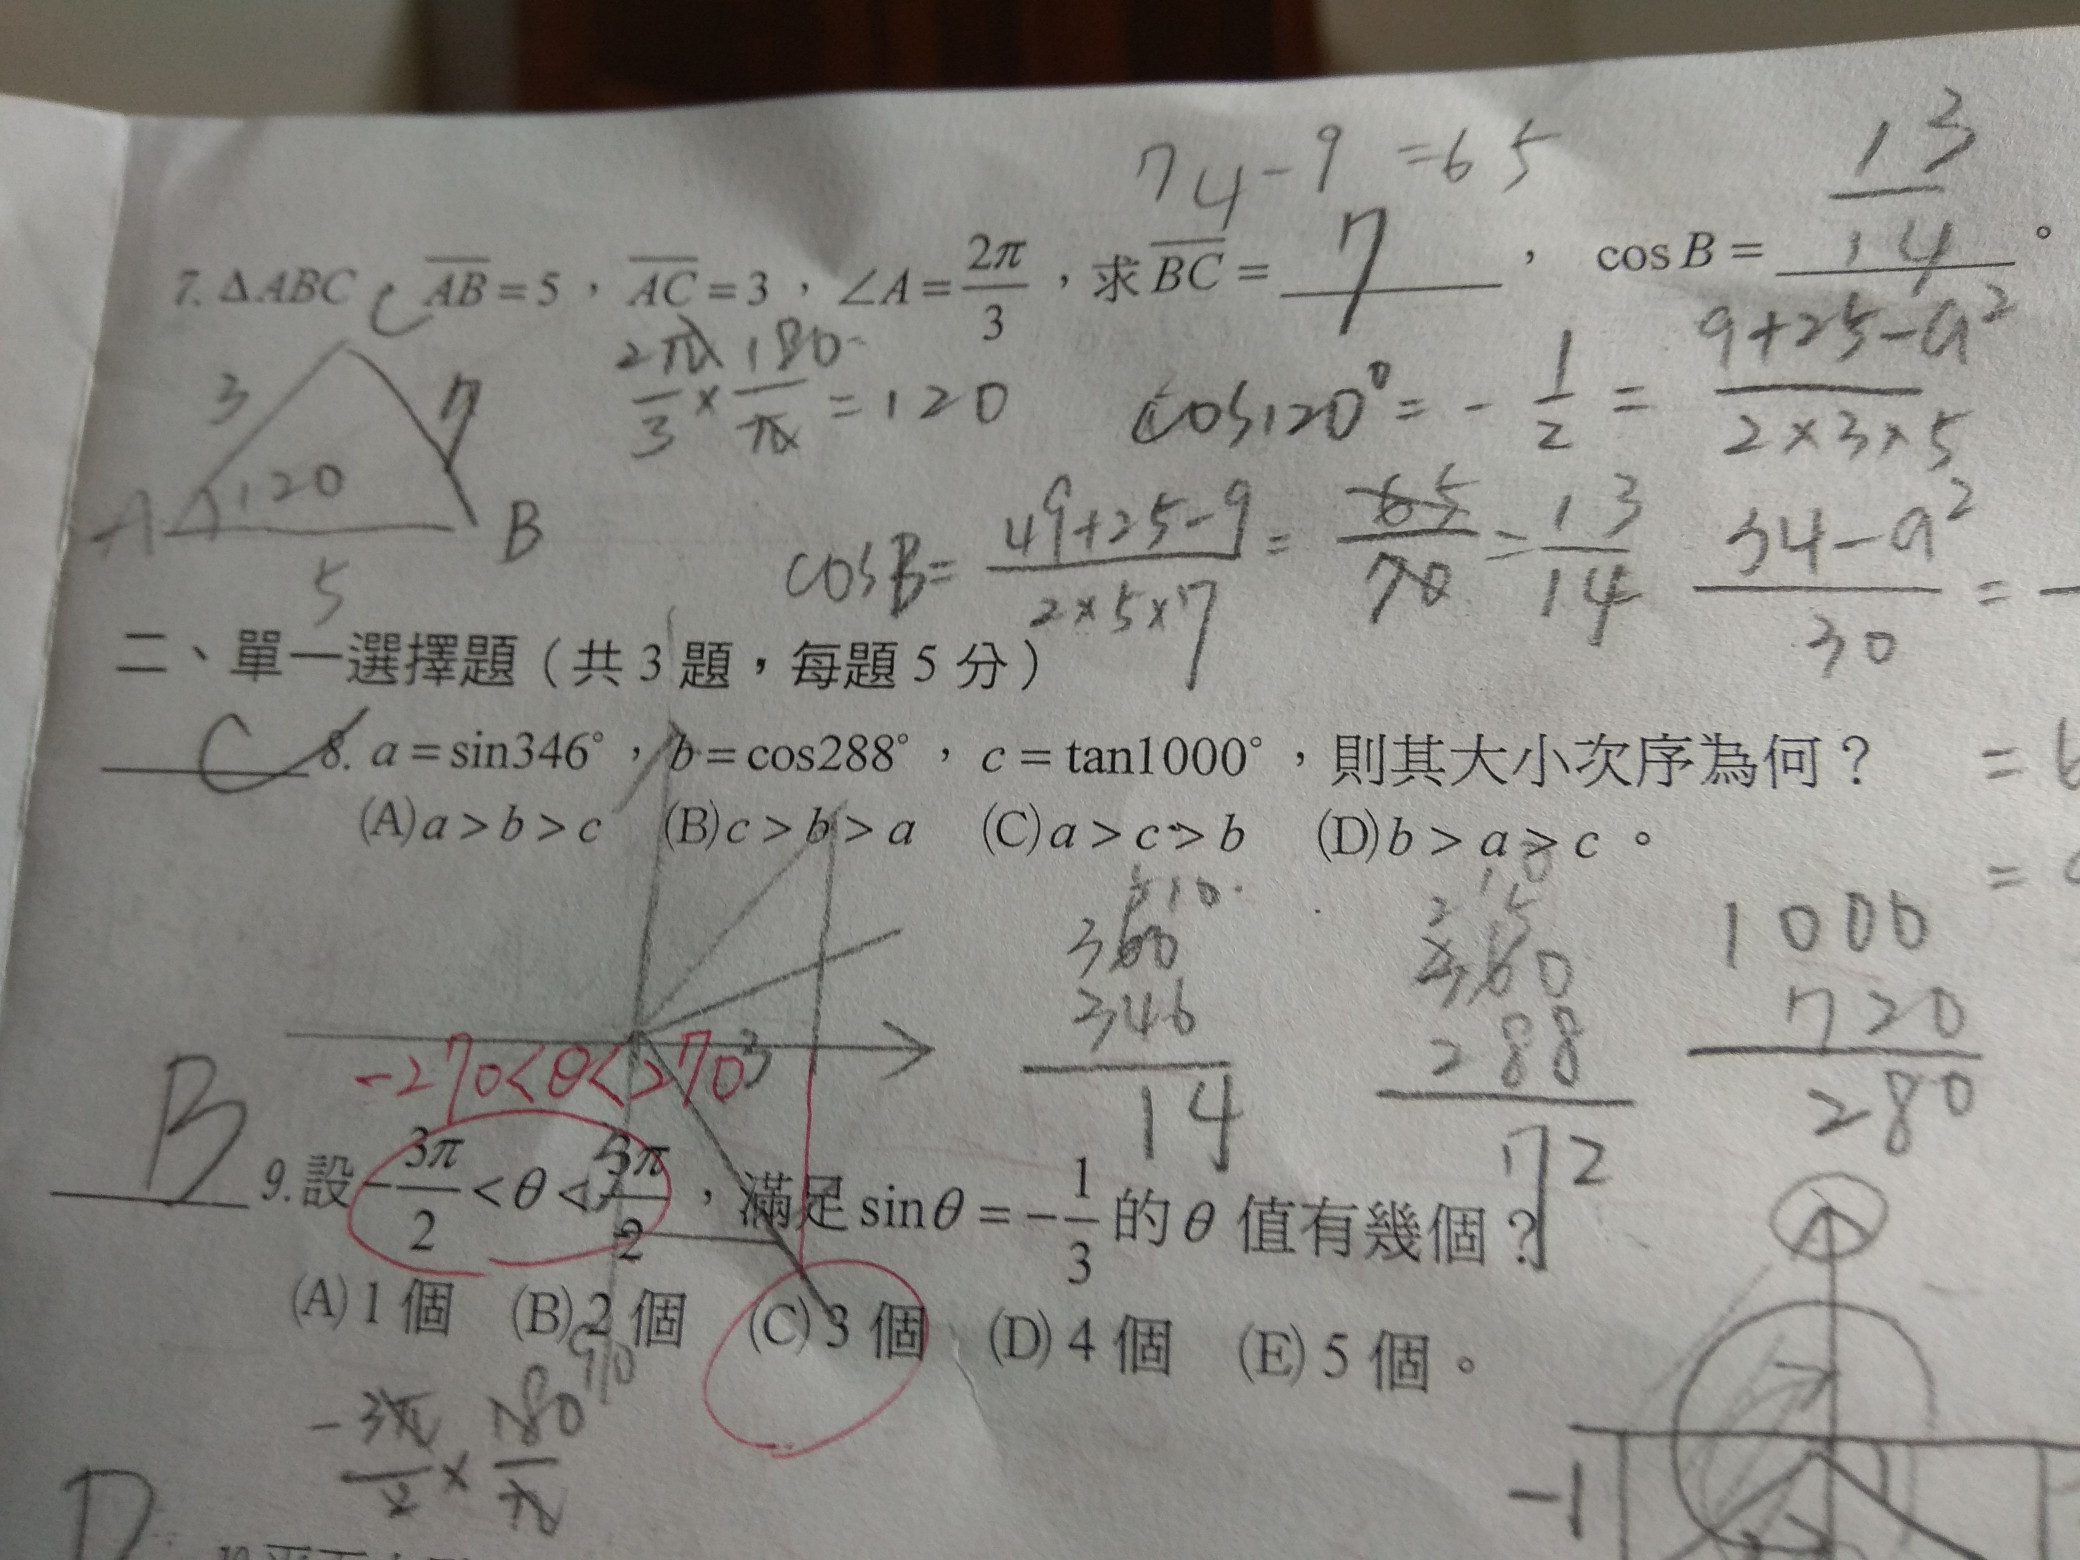 74-9=65
13
7. ΔABC C AB=5，AC=3，∠A=2π/3，求BC= 7 ，cosB= 14 。
3 7 2π/3×180/π=120 cos120°=-1/2=9+25-a²/2×3×5
A 120 B cosB=49+25-9/2×5×7=65/70=13/14 34-a²/30=-
5
二、單一選擇題（共3題，每題5分）
C 8. a=sin346°，b=cos288°，c=tan1000°，則其大小次序為何？ =
(A)a>b>c (B)c>b>a (C)a>c>b (D)b>a>c。 =
360 360 1000
346 288 720
14 72 280
-270<θ<270
B 9.設-3π/2<θ<3π/2，滿足sinθ=-1/3的θ值有幾個？
(A)1個 (B)2個 (C)3個 (D)4個 (E)5個。
-3π/2×180/π
-1
D